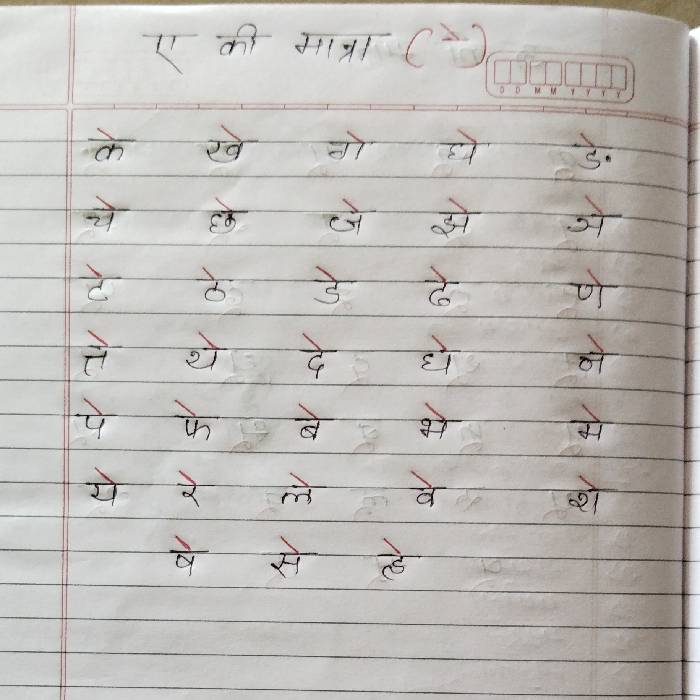 ए की मात्रा ( े )
D D M M Y Y Y Y
के खे गे घे ङे
चे छे जे झे ञे
टे ठे डे ढे णे
ते थे दे धे ने
पे फे बे भे मे
ये रे ले वे शे
षे से हे